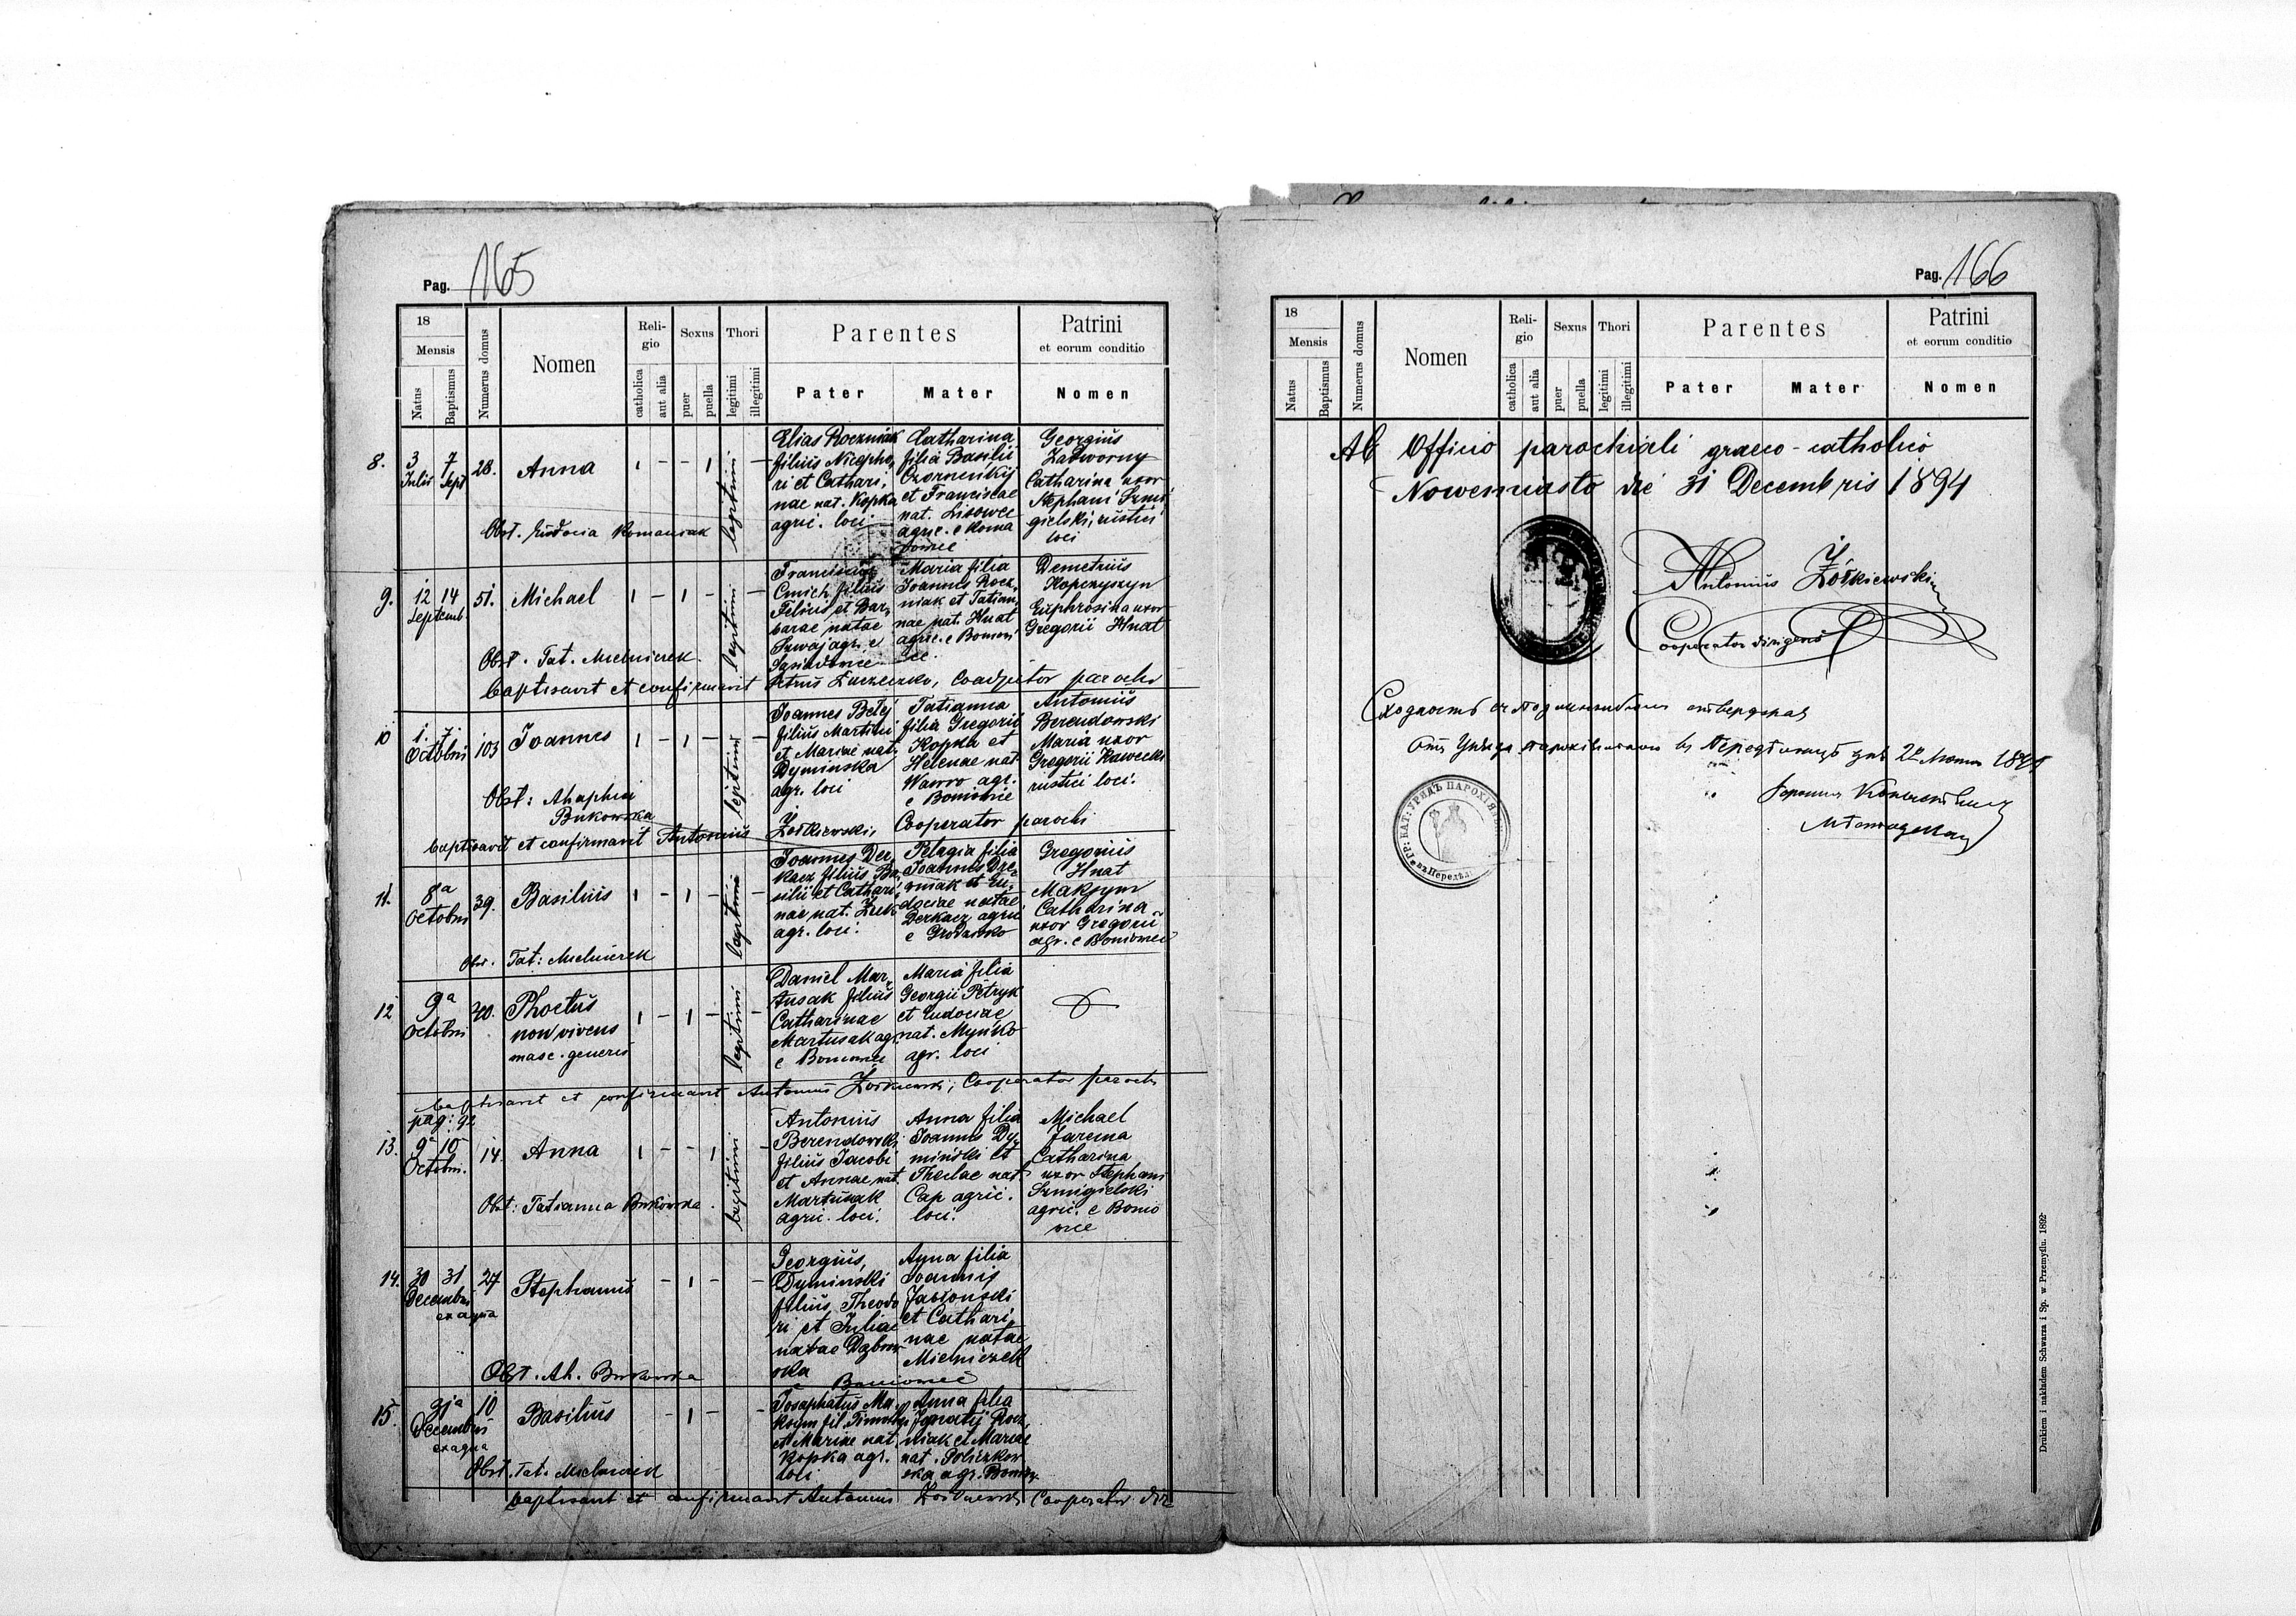 Pag. 165
18
Mensis
Natus
Baptismus
Numerus domus
Nomen
Reli-
gio
catholica
aut alia
Sexus
puer
puella
Thori
legitimi
illegitimi
Parentes
Pater
Mater
Patrini
et eorum conditio
Nomen
8.
3 7
Julii Sept
28.
Anna
1 - - 1 -
legitimi
Elias Roczniak
filius Nicepho,
ri et Cathari,
nae nat. Kopka
agric. loci
Catharina
filia Basilii
et Franciscae
nat. Lisowec
agric. e
Georgius
Zadworny
Catharina uxor
Stephani Szmi
gielski, rustici
loci
Obst. Eudocia Romaniak
9.
12 14
Septemb.
51.
Michael
1 - 1 - -
legitimi
Franciscus
filius
et Bar,
barae natae
agr. e
Maria filia
Joannis Rocz,
niak et Tatian,
nae nat. Hnat
agric. e
Demetrius
Kopczyszyn
Euphrosina uxor
Gregorii Hnat
Obst. Tat. Mielniczek
baptisavit et confirmavit Petrus coadjutor parochi
10
1. 7.
Octobri
103
Joannes
1 - 1 - -
legitimi
Joannes Betej
filius Martini
et Mariae nat.
Dyminska
agr. loci
Tatianna
filia Gregorii
Kopka et
Helenae nat.
Wawro agr.
e Boniowice
Antonius
Berendowski
Maria uxor
Gregorii Kawecki
rustici loci.
Obst: Ahaphia
Bukowska
baptisavit et confirmavit Antonius Żółkiewski, Cooperator parochi
11.
8a
Octobri
39.
Basilius
1 - 1 - -
legitimi
Joannes Der,
kacz filius Ba,
silii et Cathari,
nae nat.
agr. loci.
Pelagia filia
Joannis
et Eu,
dociae natae
Derkacz agric
e Grodzisko
Gregorius
Hnat
Maksym
Catharina
uxor Gregorii
agr. e Boniowice
Obst. Tat: Mielniczek
12
9a
Octobri
40.
Phoetus
non vivens
masc. generis
1 - 1 - -
legitimi
Daniel Mar,
tusak filius
Catharinae
Martusak agr.
e Boniowice
Maria filia
Georgii Petryk
et Eudociae
nat. Myńko
agr. loci
baptisavit et confirmavit Antonius Żółkiewski, Cooperator parochi
pag: 92
13.
9a 10
Octobri.
14.
Anna
1 - 1 -
legitimi
Antonius
Berendowski
filius Jacobi
et Annae nat.
Martusak
agric. loci.
Anna filia
Joannis Dy,
minski et
Theclae nat.
Cap agric.
loci.
Michael
Jarema
Catharina
uxor Stephani
Szmigielski
agric. e Bonio
wice
Obst: Tatianna Bukowska
14.
30 31
Decembri
ex aqua
27
Stephanus
- 1 - -
Georgius,
Dyminski
filius Theodo
ri et Juliae
natae Dąbrow
ska
Anna filia
Joannis
Jabłonski
et Cathari,
nae natae
Mielniczek
Boniowice
Obst. Ah. Bukowska
15.
31a 10
Decembris
ex aqua
Basilius
- 1 - -
Josaphatus Ma,
ksym fil. Timothei
et Mariae nat.
Kopka agr.
loci
Anna filia
Ignatii Rocz,
niak et Mariae
nat. Policzkow
ska agr. Boniow.
Obst. Tat. Mielniczek
baptisavit et confirmavit Antonius Żółkiewski Cooperator dir
Pag. 166
18
Mensis
Natus
Baptismus
Numerus domus
Nomen
Reli-
gio
catholica
aut alia
Sexus
puer
puella
Thori
legitimi
illegitimi
Parentes
Pater
Mater
Patrini
et eorum conditio
Nomen
Ab Officio parochiali graeco-catholico
Nowemiasto die 31 Decembris 1894
Antonius Żółkiewski
Cooperator dirigens
Сходность съ подлинникомъ отверждая
Отъ Уряда парохіяльного въ днѣ
ГР: КАТ: УРЯДЪ ПАРОХІЯ
Drukiem i nakładem Schwarza i Sp. w Przemyślu. 1892